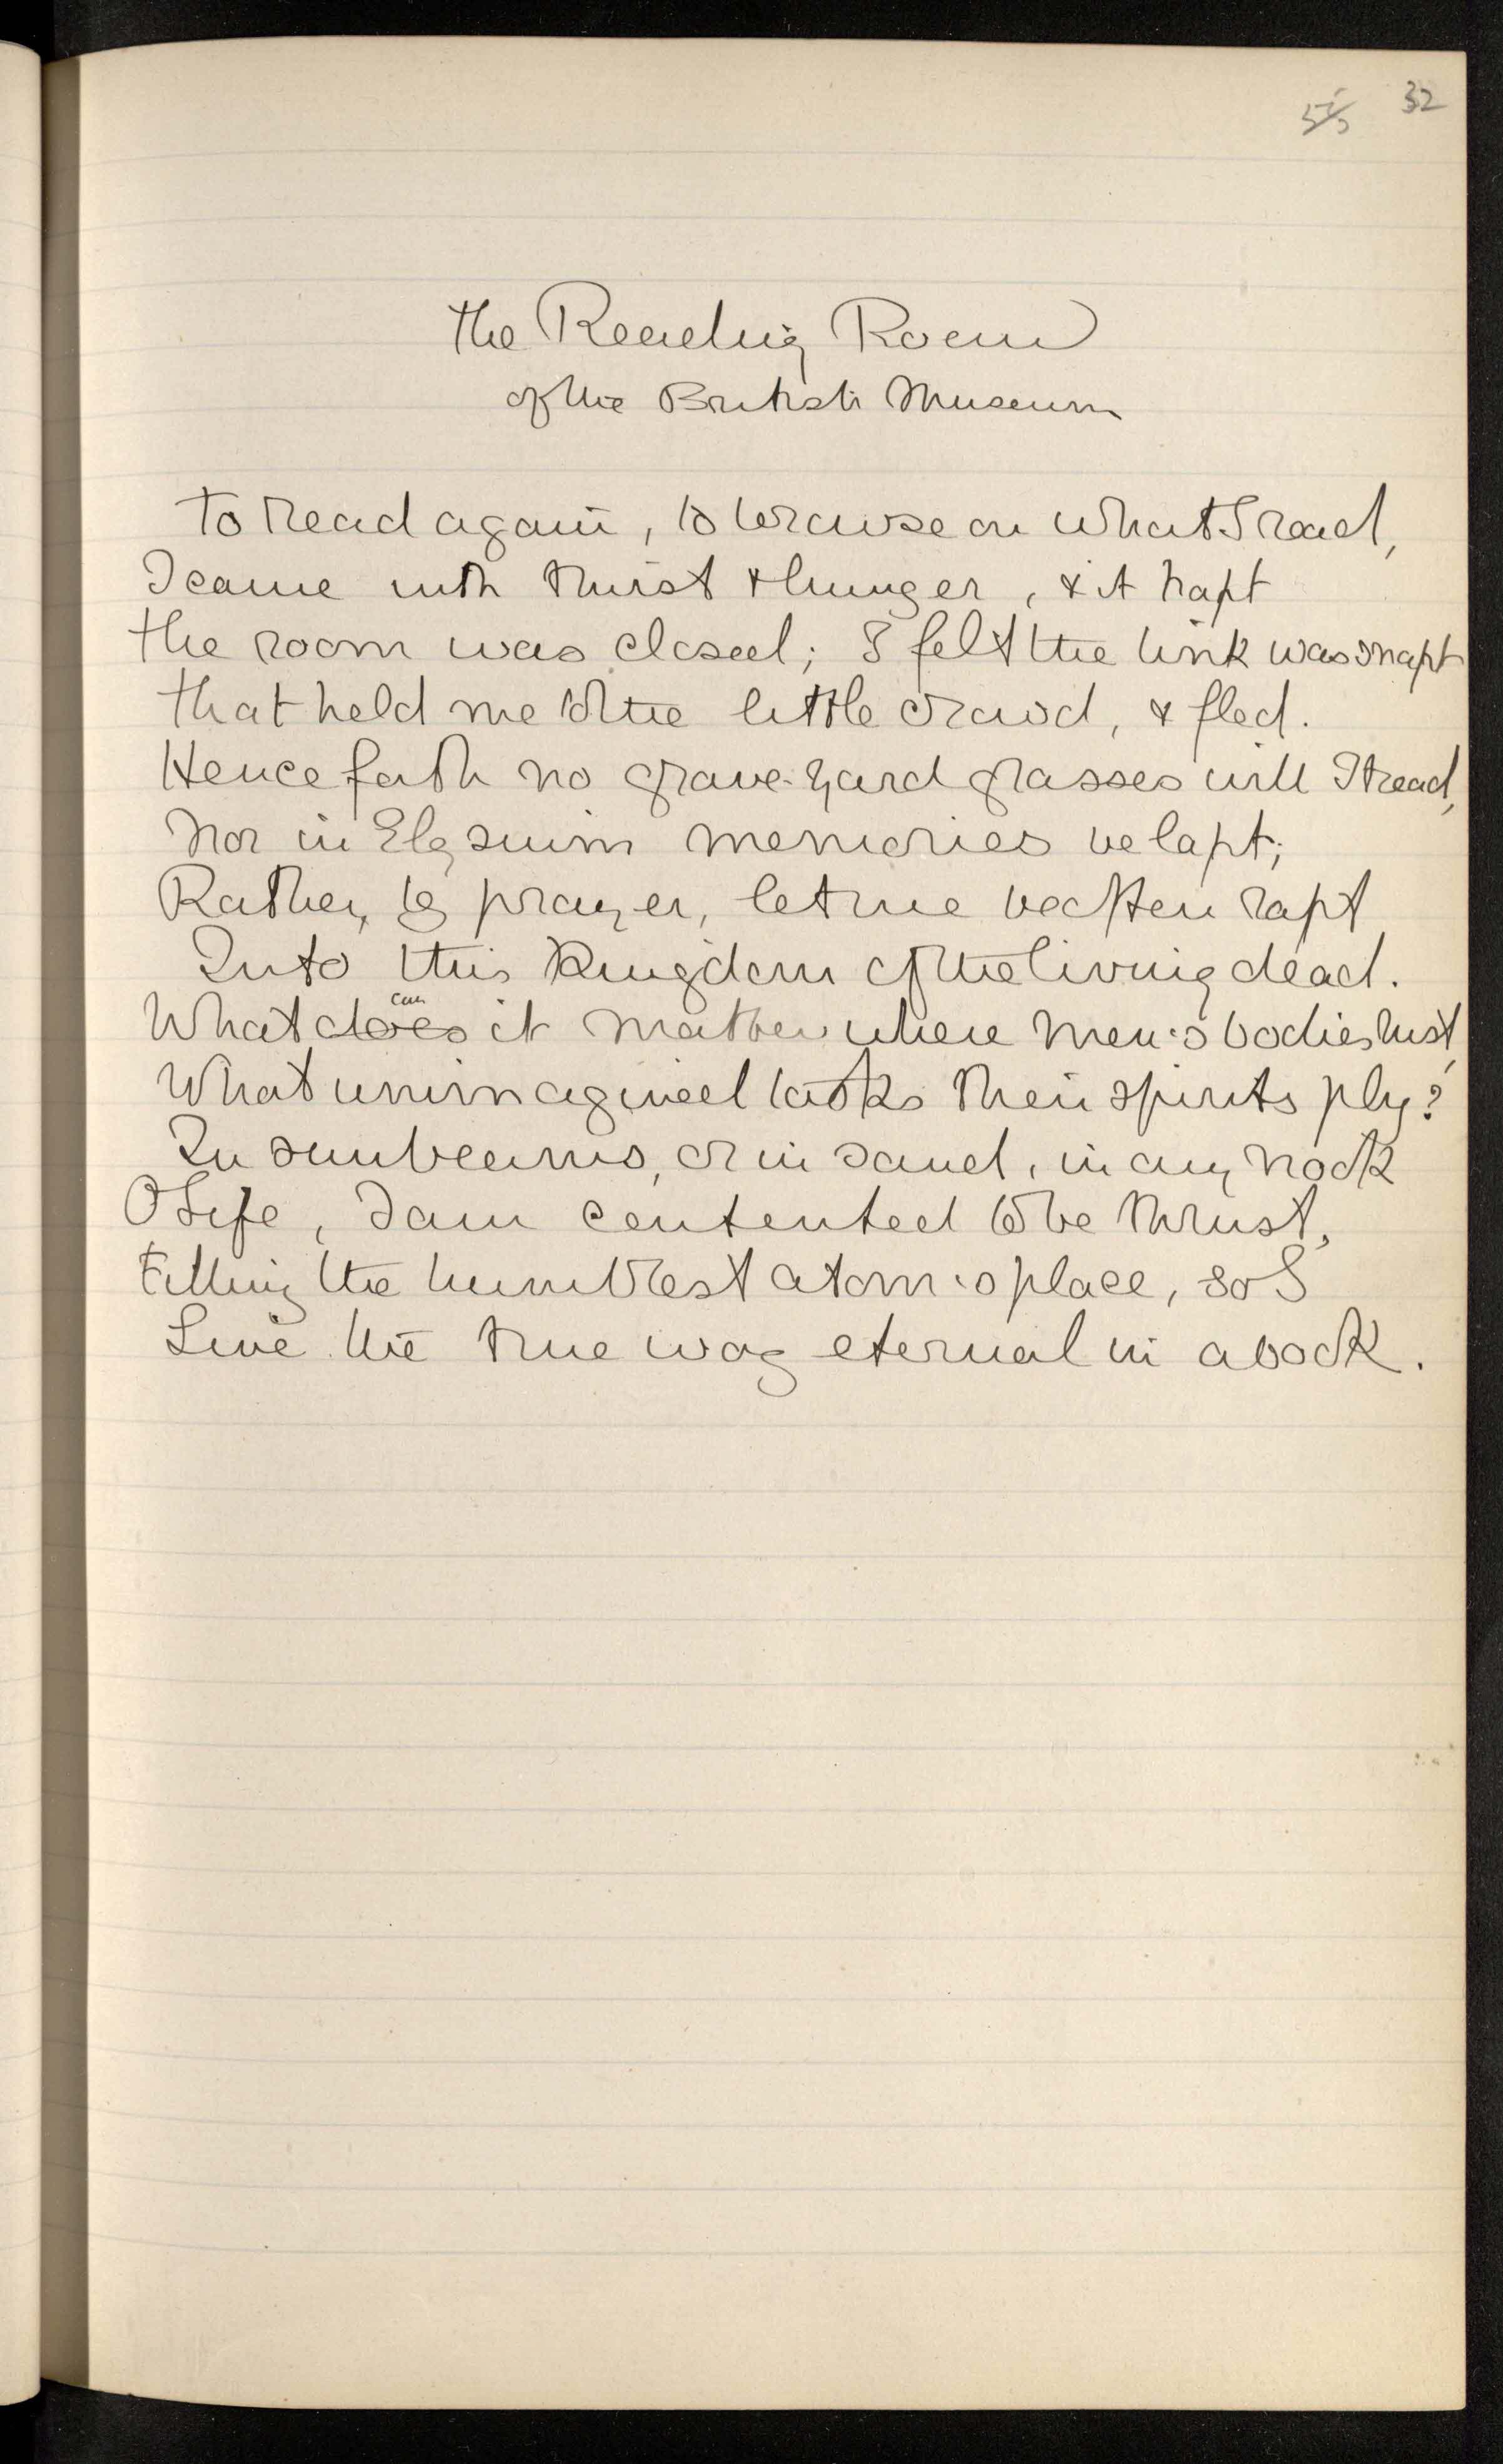 32
The Reading Room
of the British Museum
To read again, to browse on what I read,
I came with thirst & hunger, & it hapt
The room was closed; I felt the link was snapt
That held me to the little crowd, & fled.
Henceforth no grave-yard grasses will I tread,
Nor in Elysium memories be lapt;
Rather, by prayer, let me be often rapt
Into this Kingdom of the living dead.
can
What does it matter where men's bodies rust,
What unimagined tasks their spirits ply?
In sunbeams, or in sand, in any nook
O Life, I am contented to be thrust,
Filling the humblest atom's place, so I
Live the true way eternal in a book.